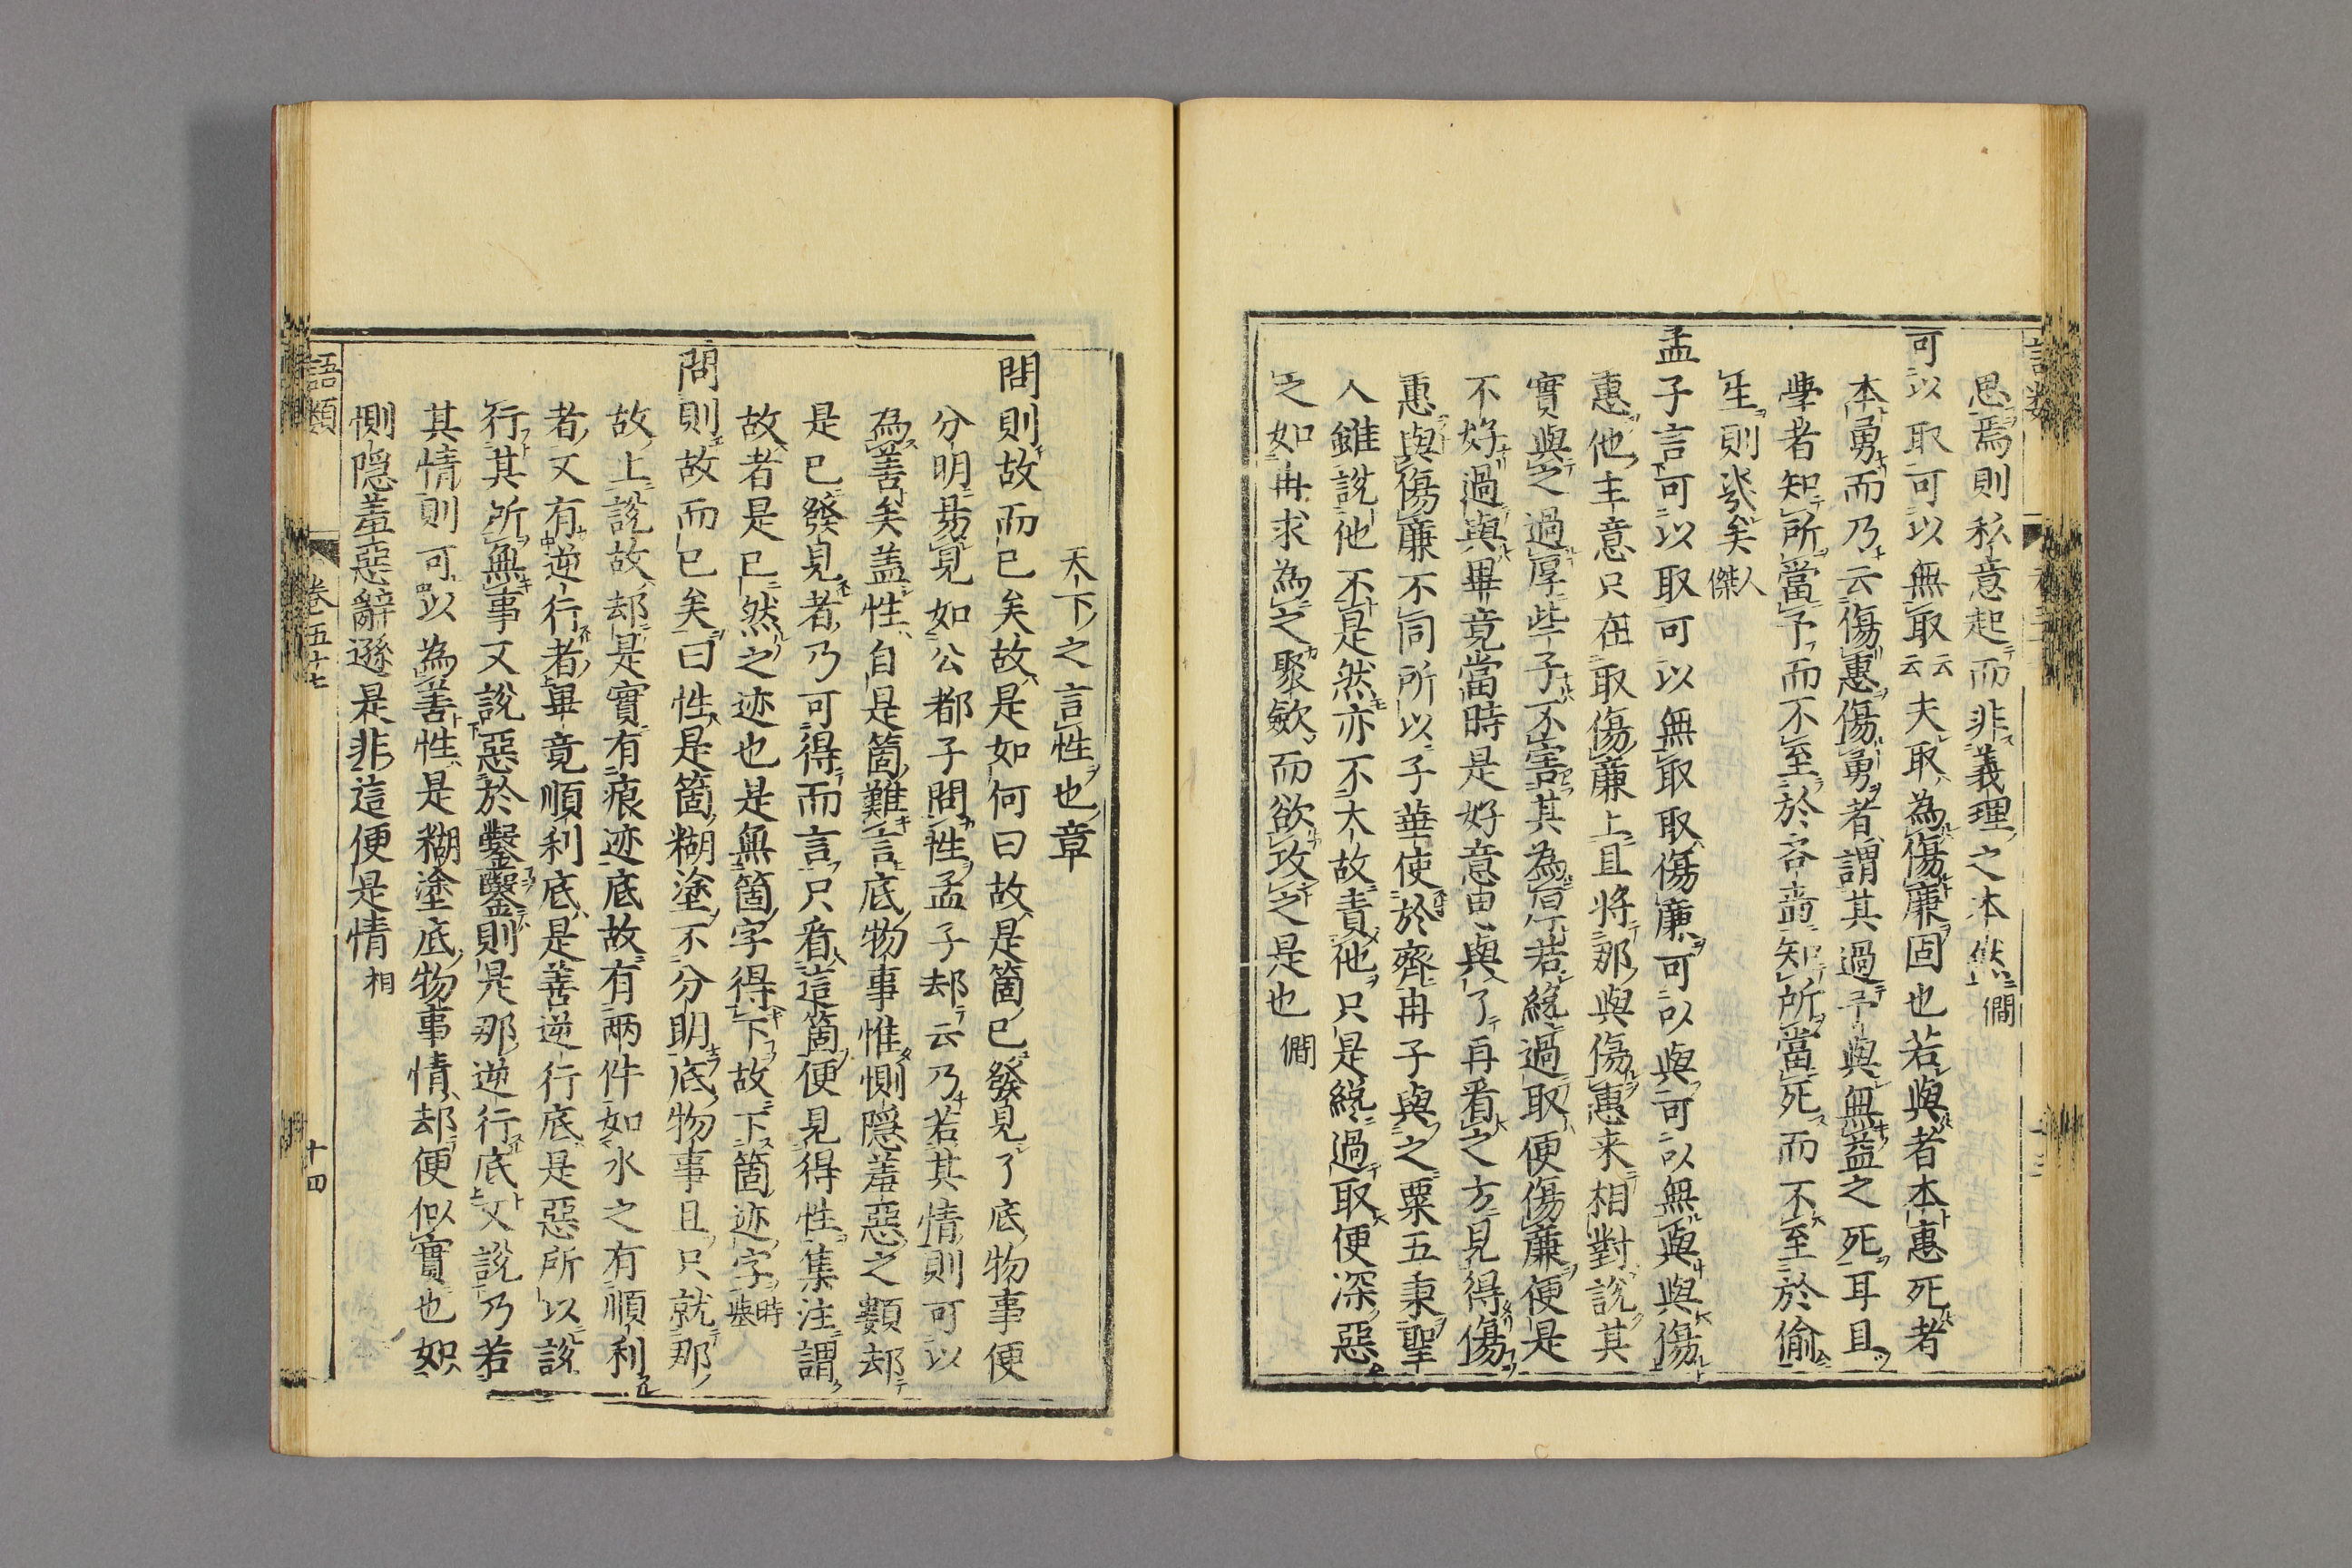 思焉則私意起而非義理之本然僩
可以取可以無取云云夫取為傷廉固也若與者本惠死者
本勇而乃云傷惠傷勇者謂其過予與無益之死耳且
學者知所當予而不至於吝嗇知所當死而不至於偷
生則幾矣人傑
孟子言可以取可以無取取傷廉可以與可以無與與傷
惠他主意只在取傷廉上且將那與傷惠来相對說其
實與之過厚些子不害其為厚若纔過取便傷廉便是
不好過與畢竟當時是好意思與了再看之方見得傷
惠與傷廉不同所以子華使於齊冉子與之粟五秉聖
人雖說他不是然亦不大故責他只是纔過取便深惡
之如冉求為之聚斂而欲攻之是也僩
天下之言性也章
問則故而已矣故是如何曰故是箇已發見了底物事便
分明易見如公都子問性孟子却云乃若其情則可以
為善矣蓋性自是箇難言底物事惟惻隠羞惡之類却
是已發見者乃可得而言只看這箇便見得性集注謂
故者是已然之迹也是無箇字得下故下箇迹字時舉
問則故而已矣曰性是箇糊塗不分明底物事且只就那
故上說故却是實有痕迹底故有兩件如水之有順利
者又有逆行者畢竟順利底是善逆行底是惡所以說
行其所無事又說惡於鑿鑿則是那逆行底又說乃若
其情則可以為善性是糊塗底物事情却便似實也如
惻隠羞惡辭遜是非這便是情相
語類
卷五十七
十四